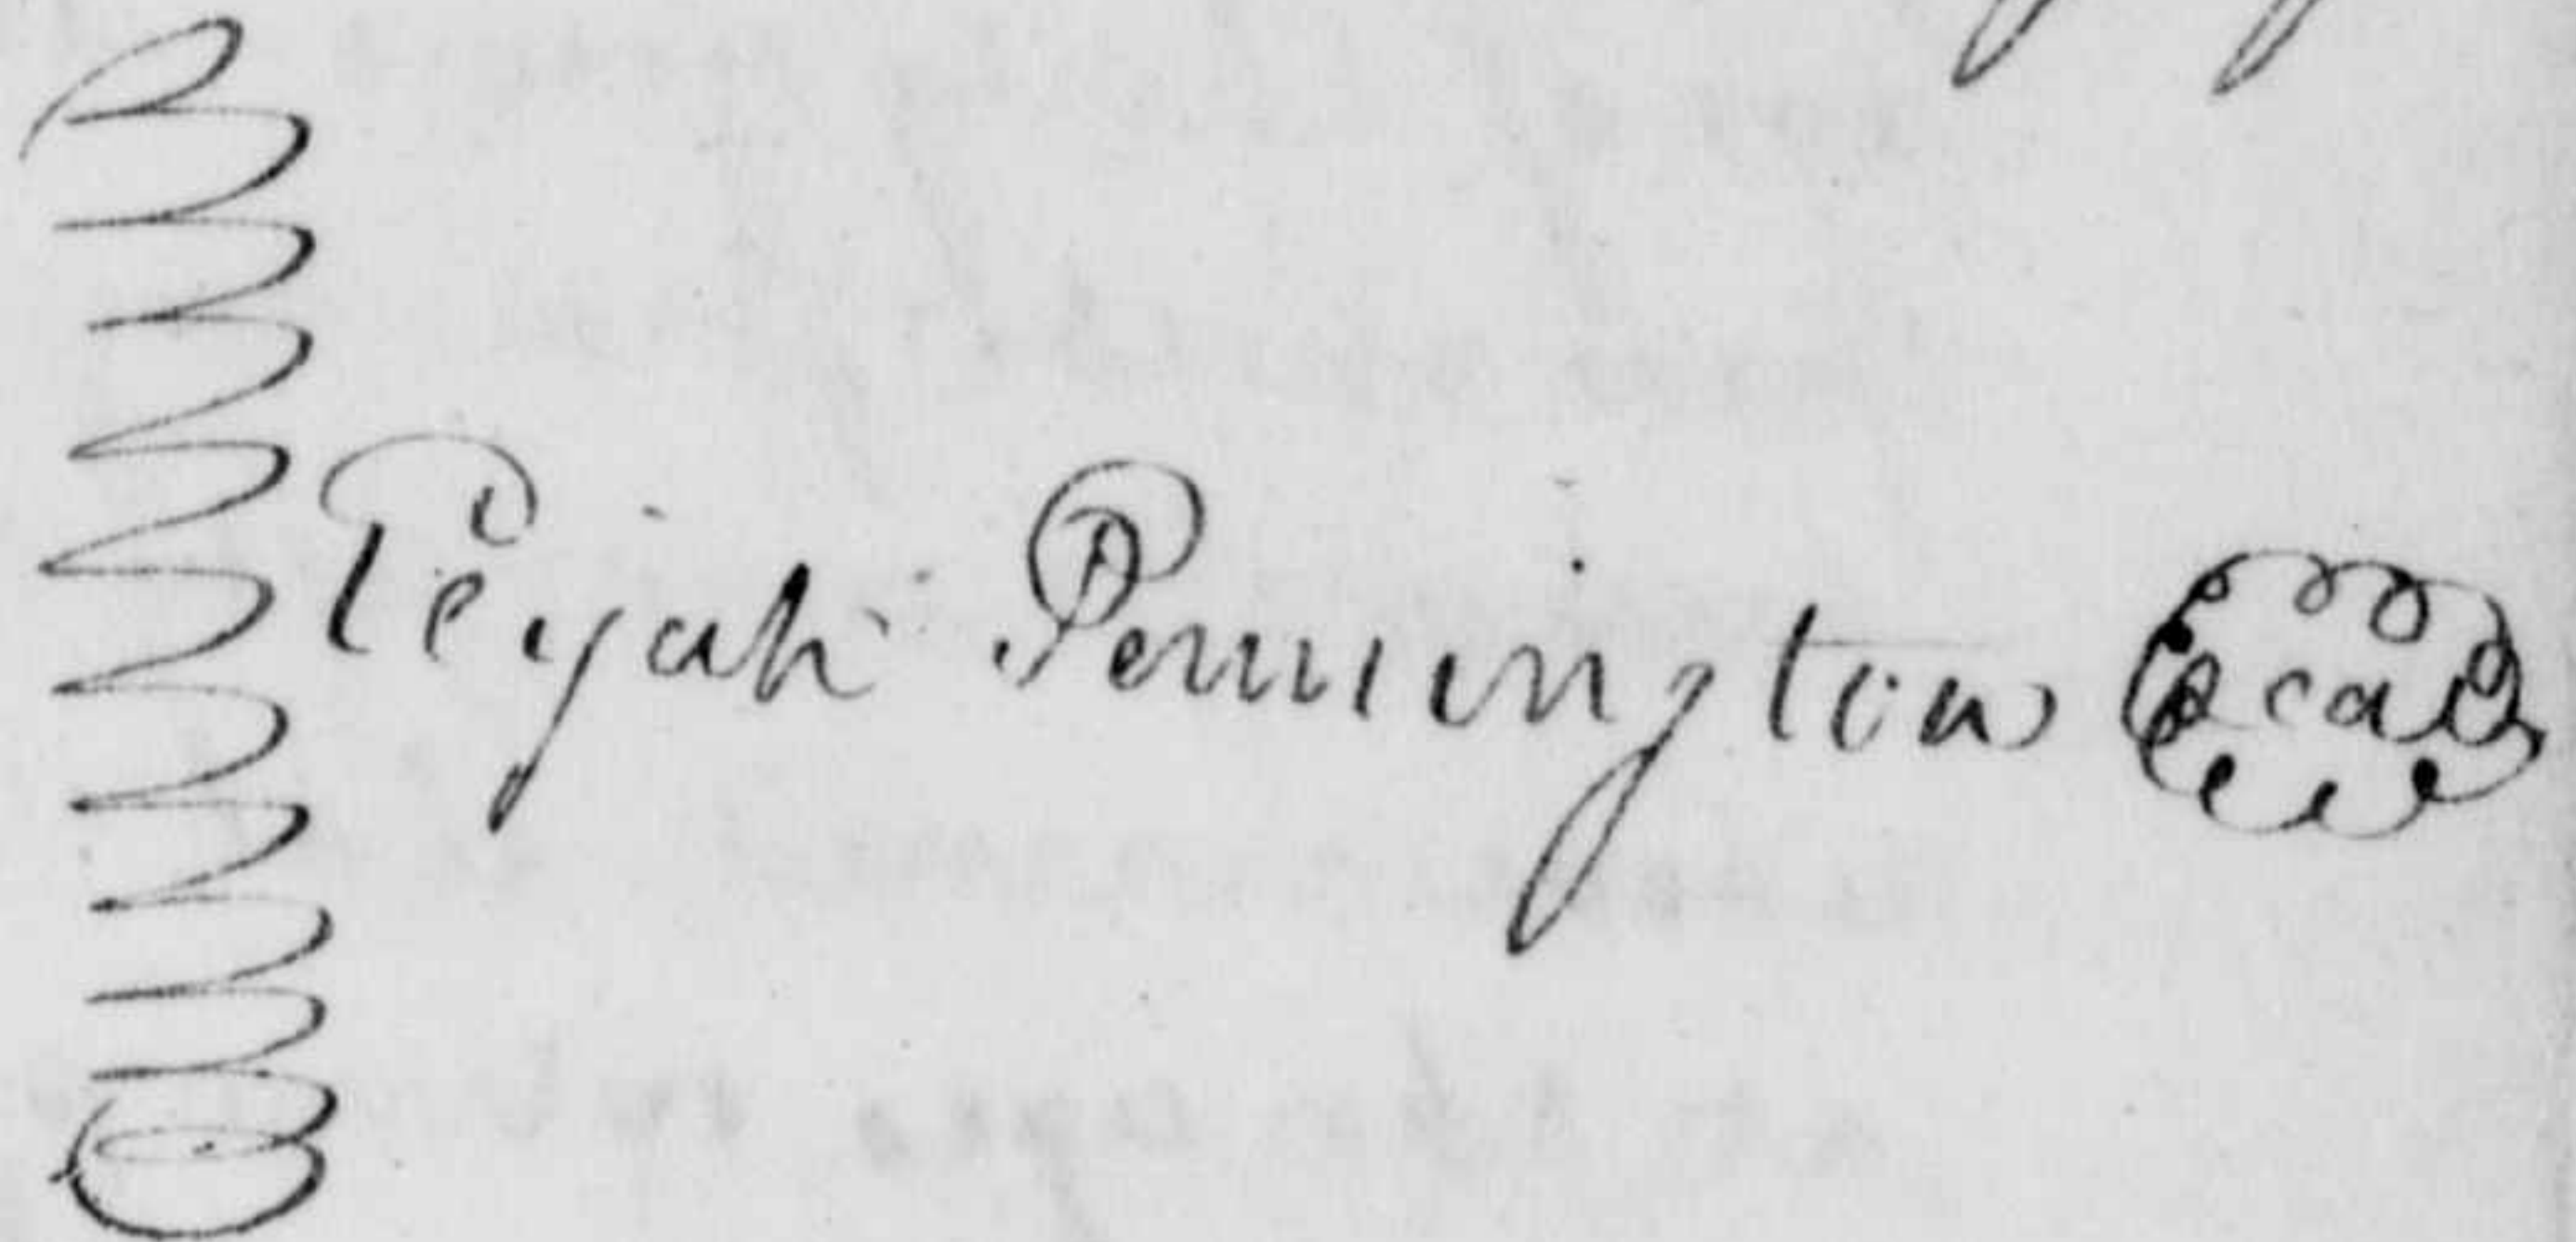 Tejah Pennington Seal